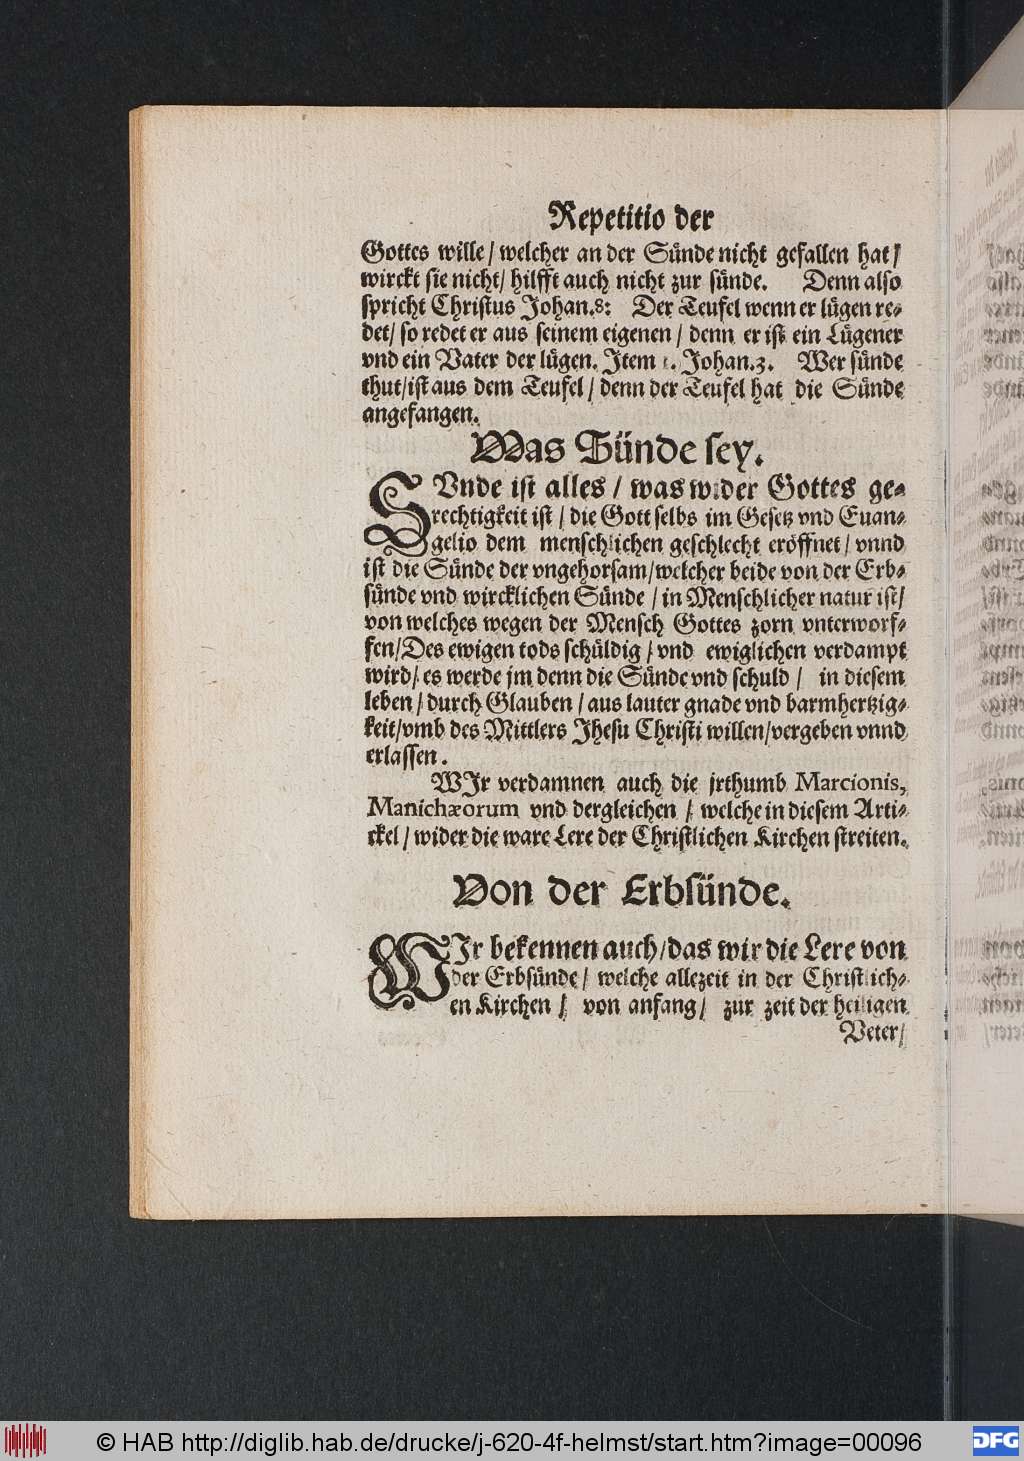 Repetitio der
Gottes wille / welcher an der Sünde nicht gefallen hat /
wirckt sie nicht / hilfft auch nicht zur sünde. Denn also
spricht Christus Johan.8: Der Teufel wenn er lügen re-
det / so redet er aus seinem eigenen / denn er ist ein Lügener
vnd ein Vater der lügen. Item 1. Johan.3. Wer sünde
thut / ist aus dem Teufel / denn der Teufel hat die Sünde
angefangen.
Was Sünde sey.
SVnde ist alles / was wider Gottes ge-
rechtigkeit ist / die Gott selbs im Gesetz vnd Euan-
gelio dem menschlichen geschlecht eröffnet / vnnd
ist die Sünde der vngehorsam / welcher beide von der Erb-
sünde vnd wircklichen Sünde / in Menschlicher natur ist /
von welches wegen der Mensch Gottes zorn vnterworf-
fen / Des ewigen tods schüldig / vnd ewiglichen verdampt
wird / es werde jm denn die Sünde vnd schuld / in diesem
leben / durch Glauben / aus lauter gnade vnd barmhertzig-
keit / vmb des Mittlers Jhesu Christi willen / vergeben vnnd
erlassen.
WJr verdamnen auch die jrthumb Marcionis,
Manichæorum vnd dergleichen / welche in diesem Arti-
ckel / wider die ware Lere der Christlichen Kirchen streiten.
Von der Erbsünde.
WJr bekennen auch / das wir die Lere von
der Erbsünde / welche allezeit in der Christlich-
en Kirchen / von anfang / zur zeit der heiligen
Veter /
© HAB http://diglib.hab.de/drucke/j-620-4f-helmst/start.htm?image=00096
DFG